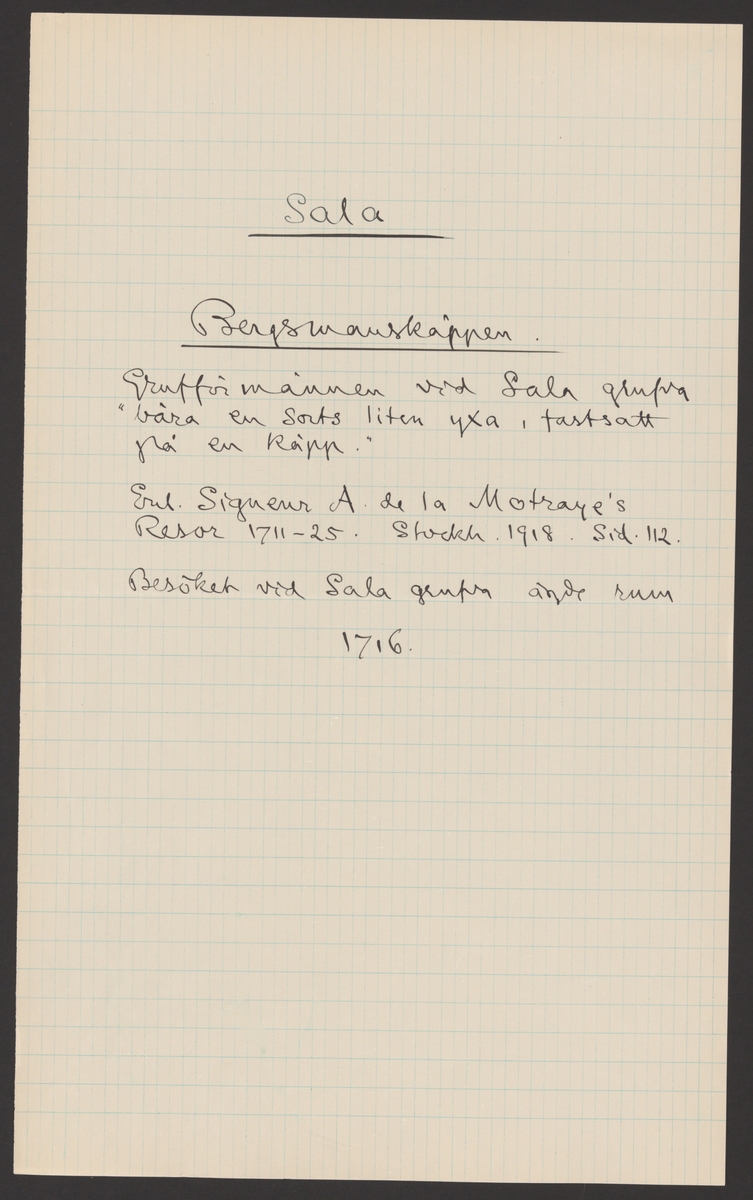 Sala
Bergsmanskäppen.
Grufförmännen vid Sala grufva
"bära en sorts liten yxa, fastsatt
på en käpp."
Enl. Signeur A. de la Motraye's
Resor 1711-25. Stockh. 1918. Sid. 112.
Besöket vid Sala grufva ägde rum
1716.